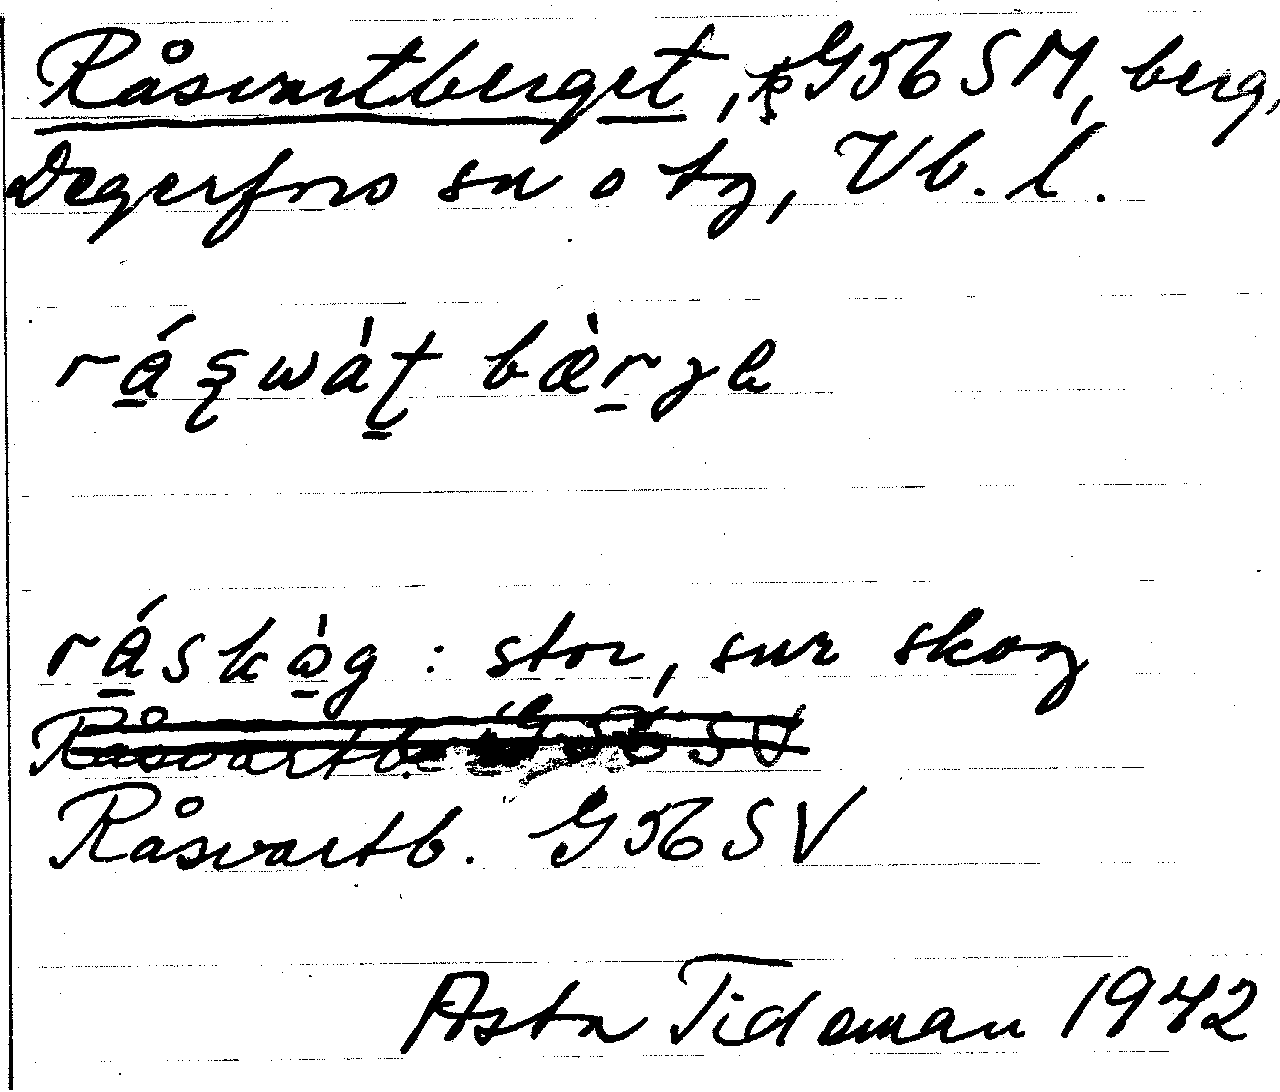 Råsvartberget, G56 SM, berg,
Degerfors sn o tg, Vb. l.
rǻʂwàt bæ̀rgɐ
rǻskò̱g : stor, sur skog
Råsvartb. G56 SV
Råsvartb. G56 SV
Asta Tideman 1942